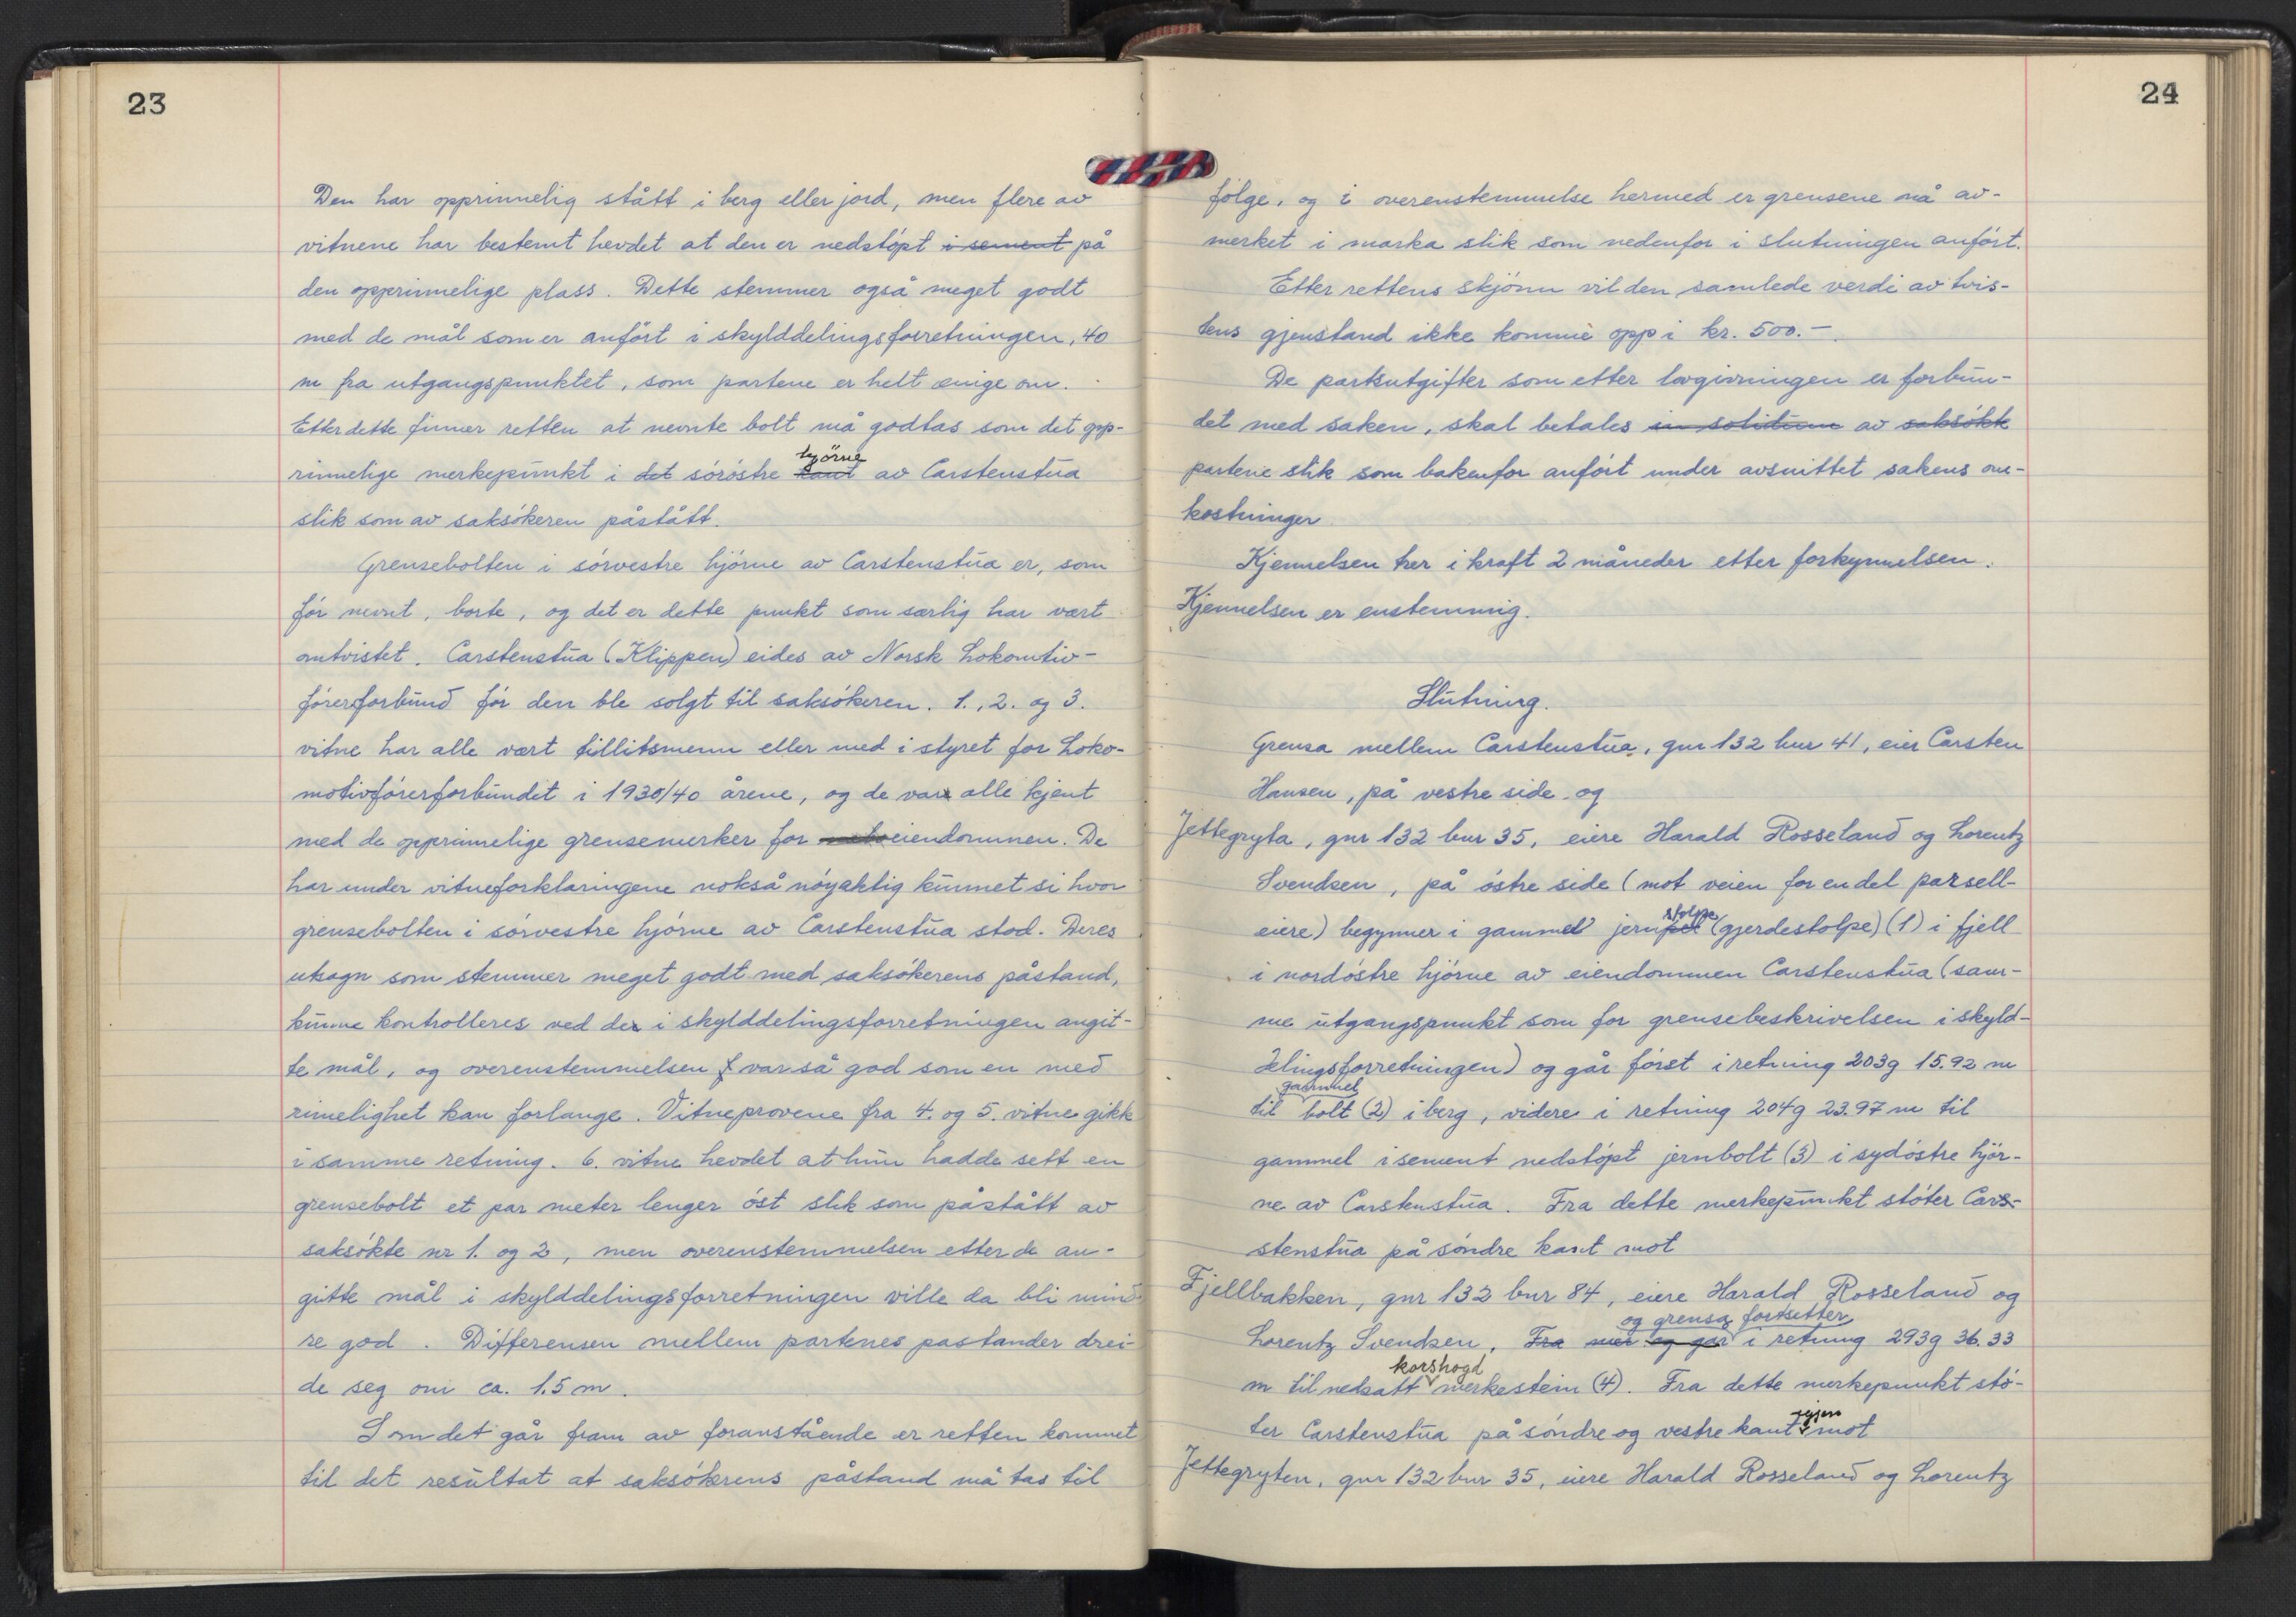 23
Den har opprinnelig stått i berg eller jord, men flere av
vitnene har bestemt hevdet at den er nedstöpt i sement på
den opprinnelige plass. Dette stemmer også meget godt
med de mål som er anfört i skylddelingsforretningen, 40
m fra utgangspunktet, som partene er helt enige om.
Etter dette finner retten at nevnte bolt må godtas som det opp-
hjörne
rinnelige merkepunkt i det söröstre kant av Carstenstua
slik som av saksökeren påstått.
Grensebolten i sörvestre hjörne av Carstenstua er, som
för nevnt, borte, og det er dette punkt som særlig har vært
omtvistet. Carstenstua (Klippen) eides av Norsk Lokomtiv-
förerforbund för den ble solgt til saksökeren. 1., 2. og 3.
vitne har alle vært tillitsmenn eller med i styret for Loko-
motivförerforbundet i 1930/40 årene, og de var alle kjent
med de opprinnelige grensemerker for eiendommen. De
har under vitneforklaringene nokså nöyaktig kunnet si hvor
grensebolten i sörvestre hjörne av Carstenstua stod. Deres
utsagn som stemmer meget godt med saksökerens påstand,
kunne kontrolleres ved de i skylddelingsforretningen angit-
te mål, og overenstemmelsen var så god som en med
rimelighet kan forlange. Vitneprovene fra 4. og 5. vitne gikk
i samme retning. 6. vitne hevdet at hun hadde sett en
grensebolt et par meter lenger öst slik som påstått av
saksökte nr 1. og 2, men overenstemmelsen etter de an-
gitte mål i skylddelingsforretningen ville da bli mind-
re god. Differensen mellem partenes pastander drei-
de seg om ca. 1.5 m.
Som det går fram av foranstående er retten kommet
til det resultat at saksökerens påstand må tas til
24
fölge, og i overenstemmelse hermed er grensene nå av-
merket i marka slik som nedenfor i slutningen anfört.
Etter rettens skjönn vil den samlede verdi av tvis-
tens gjenstand ikke komme opp i kr. 500.-.
De partsutgifter som etter lovgivningen er forbun-
det med saken, skal betales in solidum av saksökk
partene slik som bakenfor anfört under avsnittet sakens om-
kostninger
Kjennelsen trer i kraft 2 måneder etter forkynnelsen.
Kjennelsen er enstemmig.
Slutning.
Grensa mellem Carstenstua, gnr 132 bnr 41, eier Carsten
Hansen, på vestre side og
Jettegryta, gnr 132 bnr 35, eiere Harald Rosseland og Lorentz
Svendsen, på östre side (mot veien for en del parsell-
stolpe
eiere) begynner i gammel jernpel (gjerdestolpe) (1) i fjell
i nordöstre hjörne av eiendommen Carstenstua (sam-
me utgangspunkt som for grensebeskrivelsen i skyld-
delingsforretningen) og går först i retning 203g 15.92 m
gammel
til bolt (2) i berg, videre i retning 204g 23.97 m til
gammel i sement nedstöpt jernbolt (3) i sydöstre hjör-
ne av Carstenstua. Fra dette merkepunkt stöter Cars-
stenstua på söndre kant mot
Fjellbakken, gnr 132 bnr 84, eiere Harald Rosseland og
og grensa fortsetter
Lorentz Svendsen, Fra mer og går i retning 293g 36.33
korshogd
m til nedsatt merkestein (4). Fra dette merkepunkt stö-
igjen
ter Carstenstua på söndre og vestre kant mot
Jettegryten, gnr 132 bnr 35, eiere Harald Rosseland og Lorentz